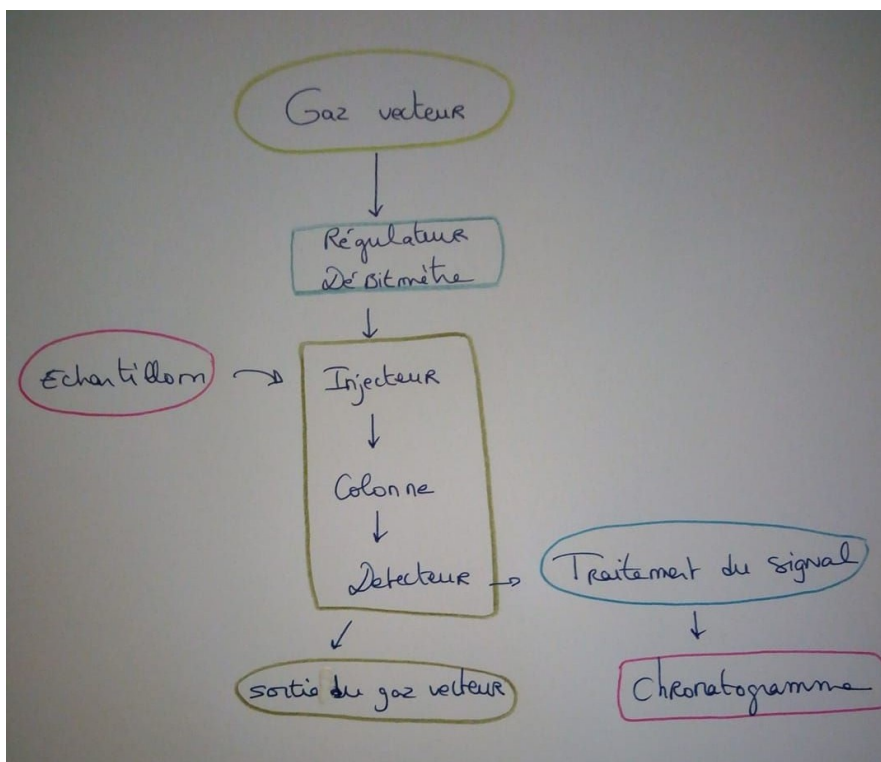 Gaz vecteur
Régulateur
Débitmètre
Echantillon
Injecteur
Colonne
Detecteur
Traitement du signal
sortie du gaz vecteur
Chromatogramme